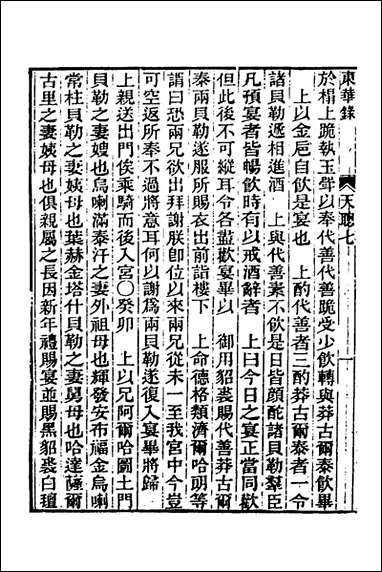 東華錄　天聰七　一
於榻上跪執玉斝以奉代善代善跪受少飲轉與莽古爾泰飲畢
上以金卮自飲是宴也　上酌代善者三酌莽古爾泰者一令
諸貝勒遞相進酒　上與代善素不飲是日皆顏酡諸貝勒羣臣
凡預宴者皆暢飲時有以戒酒辭者　上曰今日之宴正當同歡
但此後不可縱耳令各盡歡宴畢以　御用貂裘賜代善莽古爾
泰兩貝勒遂服所賜衣出前詣樓下　上命德格類濟爾哈朗等
謂曰恐兩兄欲出拜謝朕卽位以來兩兄從未一至我宮中今豈
可空返所奉不過將意耳何以謝爲兩貝勒遂復入宴畢將歸
上親送出門俟乘騎而後入宮○癸卯　上以兄阿爾哈圖土門
貝勒之妻嫂也烏喇滿泰汗之妻外祖母也輝發安布福金烏喇
常柱貝勒之妻姨母也葉赫金塔什貝勒之妻舅母也哈達薩爾
古里之妻姨母也俱親屬之長因新年禮賜宴並賜黑貂裘白氊